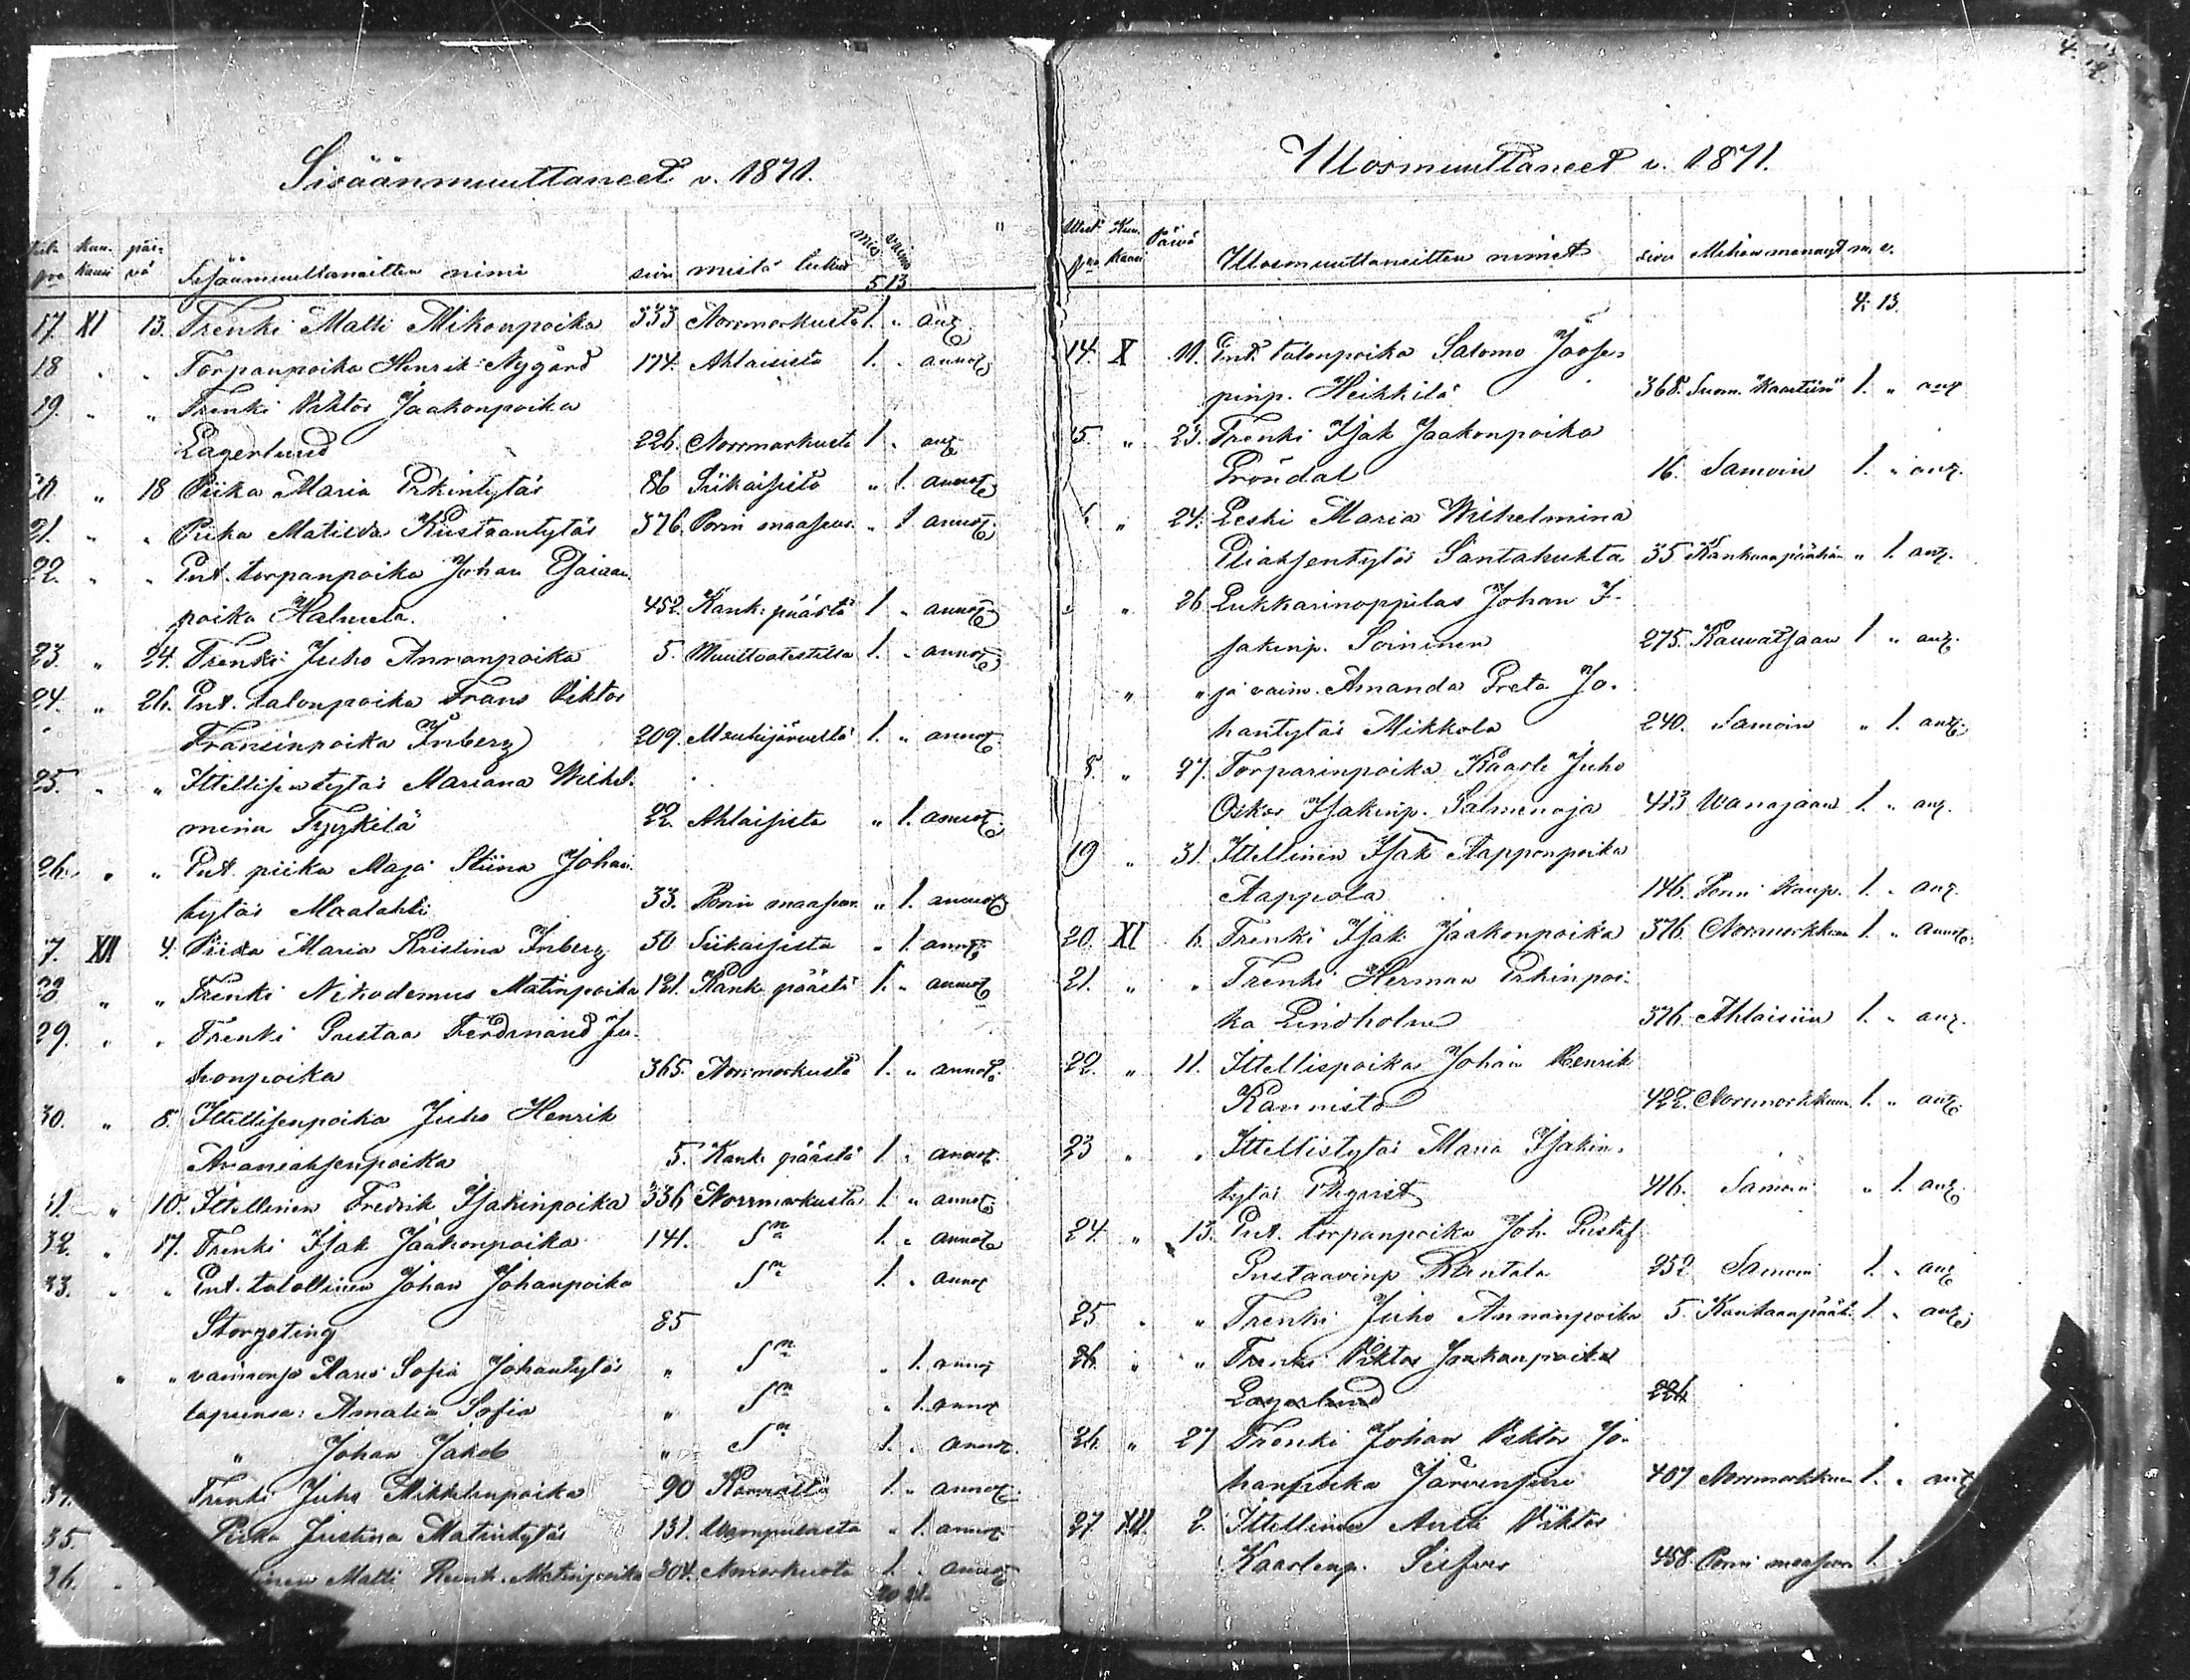 4.
Sisäänmuuttaneet v. 1871.
kuu-kausi päi-vä Sisäänmuuttaneitten nimi sivu mistä tulleet mies vaimo
5 13
17. XI 13. Trenki Matti Mikonpoika 333 Norrmarkusta 1. „ ant.
18 „ „ Torpanpoika Henrik Nygård 174. Ahlaisista 1. „ annot.
19. „ „ Trenki Viktor Jaakonpoika
Lagerlund 226. Norrmarkusta 1 „ ant.
20 „ 18 Piika Maria Erkintytär 86 Siikaisista „ 1. annot.
21. „ „ Piika Matilda Kustaantytär 376. Porin maaseur. „ 1 annot.
22. „ „ Ent. torpanpoika Johan Esaian
poika Halmela. 452. Kank: päästä 1 „ annot.
23. „ 24. Trenki Juho Annanpoika 5. Muuttoatestilla 1. „ annot.
24. „ 26. Ent. talonpoika Frans Viktor
Fransinpoika Inberg 209. Mouhijärveltä 1. „ annot.
25. „ „ Ittellisentytär Mariana Wilhel-
mina Tyykilä 22. Ahlaisista „ 1. annot.
26. „ „ Ent. piika Maja Stiina Johan
tytär Maalahti 33. Porin maaseur. „ 1. annot.
7. XII 4. Piika Maria Kristina Inberg 50 Siikaisista „ 1. annot.
28 „ „ Trenki Nikodemus Matinpoika 121. Kank: päästä 1. „ annot.
29. „ „ Trenki Kustaa Ferdinand Ju-
honpoika 365. Norrmarkusta 1. „ annot.
30. „ 8. Ittellisenpoika Juho Henrik
Ananiaksenpoika 5. Kank: päästä 1 „ annot.
31. „ 10. Ittellinen Fredrik Isakinpoika 336 Norrmarkusta 1. „ annot.
32. „ 17. Trenki Isak Jaakonpoika 141. Sn 1. „ annot.
33. „ „ Ent. talollinen Johan Johanpoika Sn 1. „ annot
Storgeting 85
„ „ vaimonsa Maria Sofia Johantytär „ Sn „ 1. annot
lapsensa: Amalia Sofia „ Sn „ 1. annot
„ Johan Jakob „ Sn 1. „ annot.
34. Trenki Juho Mikkelinpoika 90 1. „ annot.
35. Piika Justina Matintytär 131. „ 1. annot.
36. Matti Henrik Matinpoika 304. Nmarkusta 1. „ annot
20 21.
Ulosmuuttaneet v. 1871.
Kuu-kausi Päivä Ulosmuuttaneitten nimet sivu Mihin menneet m. v.
4. 13.
14. X 11. Ent. talonpoika Salomo Joose-
pinp. Heikkilä 368. Suom. "Kaartiin" 1. „ ant
15. „ 23. Trenki Isak Jaakonpoika
Gröndal 16. Samoin 1. „ ant.
„ 24. Leski Maria Wilhelmina
Eliaksentytär Santakuhta 35 Kankaanpäähän „ 1. ant.
„ 26 Lukkarinoppilas Johan I-
sakinp. Soininen 275. Kauvatsaan 1 „ ant.
„ „ ja vaim. Amanda Greta Jo-
hantytär Mikkola 240. Samoin „ 1. ant.
8. „ 27. Torparinpoika Kaarle Juho
Oskar Isakinp. Salmenoja 413 Wanajaan 1. „ ant.
19 „ 31 Ittellinen Isak Aapponpoika
Aappola 146. Porin kaup. 1. „ ant.
20. XI 6. Trenki Isak Jaakonpoika 376. Norrmarkkuun 1. „ annot.
21. „ „ Trenki Herman Erkinpoi-
ka Lindholm 376. Ahlaisiin 1. „ ant.
22. „ 11. Ittellispoika Johan Henrik
Kannisto 422. Norrmarkkuun 1. „ ant.
23 „ „ Ittellistytär Maria Isakin-
tytär 416. Samoin „ 1. ant.
24. „ 13. Ent. torpanpoika Joh. Gustaf
Kustaavinp. Rantala 252 Samoin 1. „ ant
25 „ „ Trenki Juho Annanpoika 5. Kankaanpääh. 1. „ ant.
26. „ „ Trenki Viktor Jaakonpoika
Lagerlund 226
26. „ 27 Trenki Johan Viktor Jo-
hanpoika Järvensivu 407 Norrmarkkuun 1. „ ant
27 XII. 2. Ittellinen Antti Viktor
Kaarlenp. 458. Porin maaseur. 1.